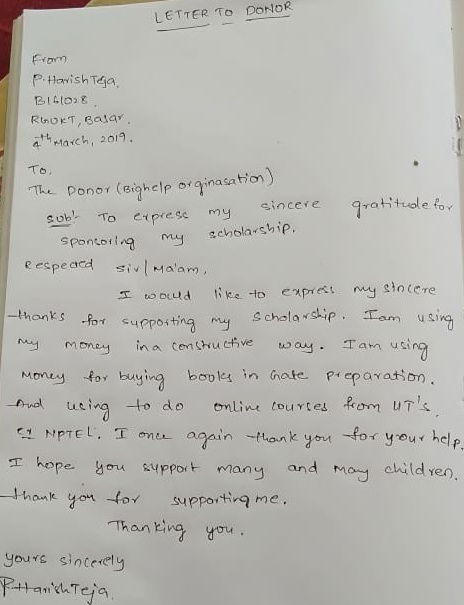 LETTER TO DONOR
From
P. Harish Teja,
B161028.
RGUKT, Basar,
4th March, 2019.
To,
The Donor (Bighelp orginasation)
sub:- To express my sincere gratitude for
sponsoring my scholarship.
Respected sir/Ma'am,
I would like to express my sincere
thanks for supporting my scholarship. I am using
my money in a constructive way. I am using
money for buying books in Gate preparation.
And using to do online courses from IIT's.
NPTEL. I once again thank you for your help.
I hope you support many and may children.
thank you for supporting me.
Thanking you.
yours sincerely
P. Harish Teja.